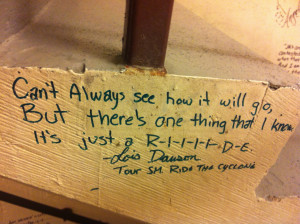 Can't Always see how it will go,
But there's one thing that I know
It's just a R-I-I-I-I-D-E
-Lois Dawson
Tour SM. Ride The Cyclone